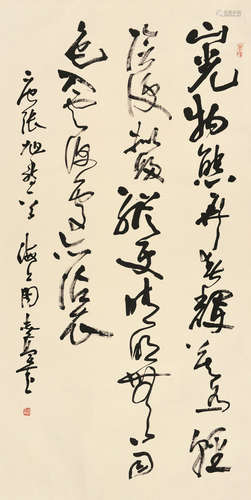 山光物態弄春輝莫為輕
陰便擬歸縱使晴明無雨
色入雲深處亦沾衣
唐張旭詩一首 海上周慧珺